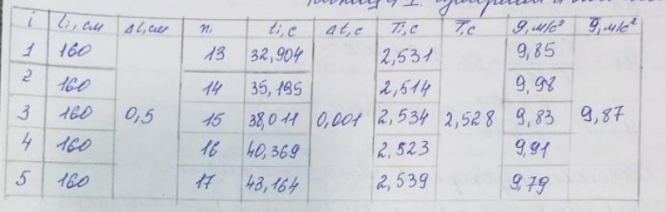 i li, см Δl, см ni ti, с Δt, с Ti, с T, с g, м/с² g, м/с²
1 160 13 32,904 2,531 9,85
2 160 14 35,195 2,514 9,98
3 160 0,5 15 38,011 0,001 2,534 2,528 9,83 9,87
4 160 16 40,369 2,523 9,91
5 160 17 43,164 2,539 9,79